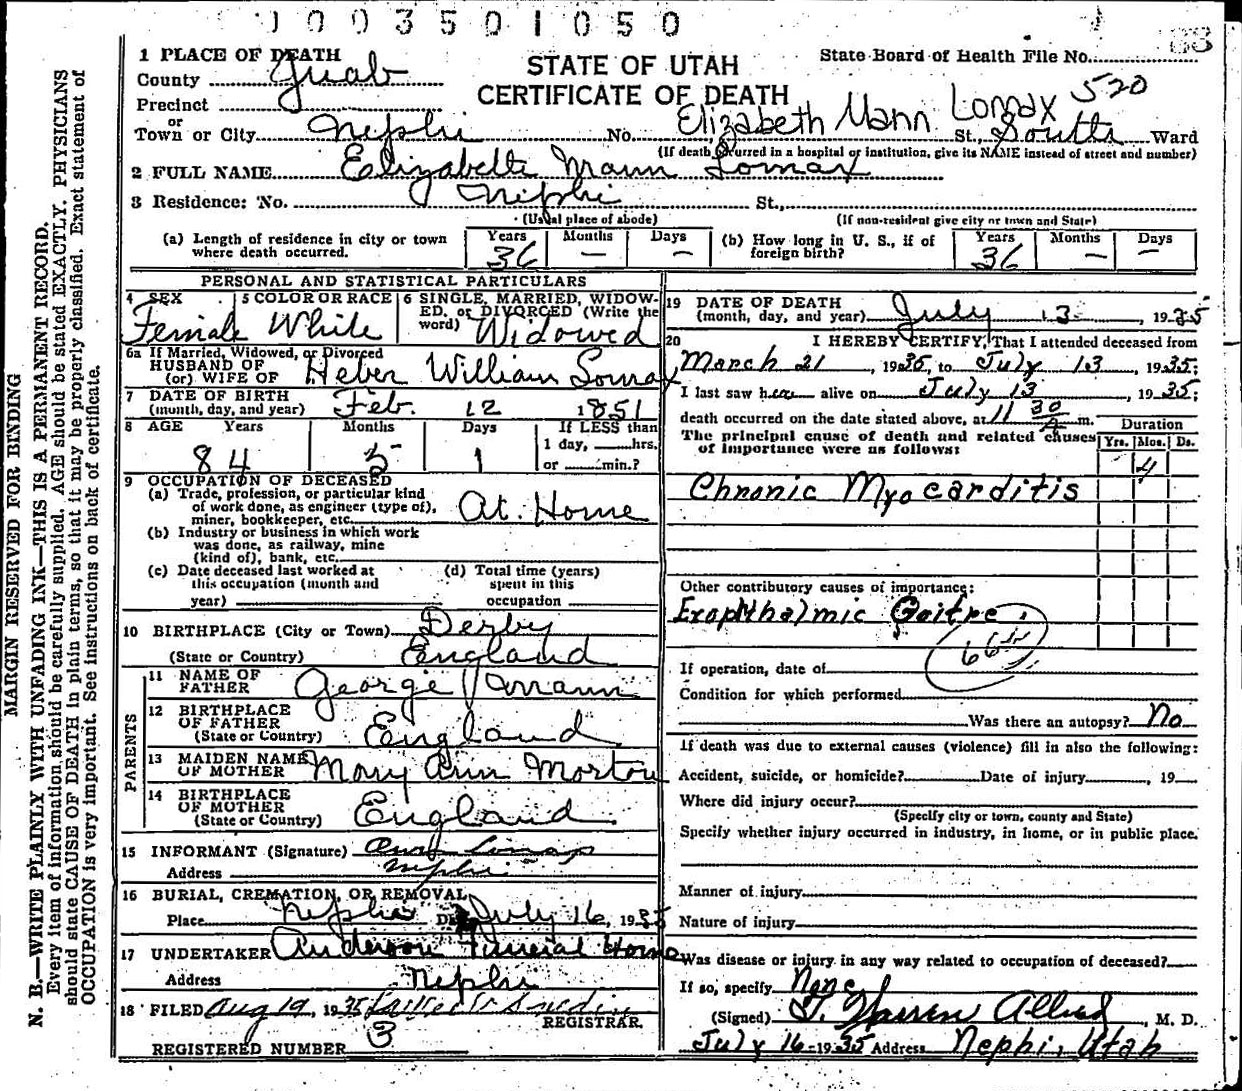 1003501050
1 PLACE OF DEATH
County Juab
STATE OF UTAH
CERTIFICATE OF DEATH
State Board of Health File No.
Precinct
or
Town or City Nephi No. St., South Ward
Elizabeth Mann Lomax 520
(If death occurred in a hospital or institution, give its NAME instead of street and number)
2 FULL NAME Elizabeth Mann Lomax
3 Residence: No. Nephi St.,
(Usual place of abode) (If non-resident give city or town and State)
(a) Length of residence in city or town where death occurred. Years 36 Months — Days —
(b) How long in U. S., if of foreign birth? Years 36 Months — Days —
PERSONAL AND STATISTICAL PARTICULARS
4 SEX Female
5 COLOR OR RACE White
6 SINGLE, MARRIED, WIDOWED, or DIVORCED (Write the word) Widowed
6a If Married, Widowed, or Divorced
HUSBAND OF
(or) WIFE OF Heber William Lomax
7 DATE OF BIRTH
(month, day, and year) Feb. 12 1851
8 AGE Years 84 Months 5 Days 1
If LESS than
1 day, hrs.
or min.?
9 OCCUPATION OF DECEASED
(a) Trade, profession, or particular kind
of work done, as engineer (type of),
miner, bookkeeper, etc. At Home
(b) Industry or business in which work
was done, as railway, mine
(kind of), bank, etc.
(c) Date deceased last worked at
this occupation (month and
year)
(d) Total time (years)
spent in this
occupation
10 BIRTHPLACE (City or Town) Derby
(State or Country) England
PARENTS
11 NAME OF
FATHER George Mann
12 BIRTHPLACE
OF FATHER
(State or Country) England
13 MAIDEN NAME
OF MOTHER Mary Ann Morton
14 BIRTHPLACE
OF MOTHER
(State or Country) England
15 INFORMANT (Signature) Lomax
Address Nephi
16 BURIAL, CREMATION, OR REMOVAL
Place Nephi July 16, 1935
17 UNDERTAKER Anderson Funeral Home
Address Nephi
18 FILED Aug 19, 1935
REGISTRAR.
REGISTERED NUMBER 3
19 DATE OF DEATH
(month, day, and year) July 13, 1935
20 I HEREBY CERTIFY, That I attended deceased from
March 21, 1935, to July 13, 1935;
I last saw her alive on July 13, 1935;
death occurred on the date stated above, at 11 30 A m.
The principal cause of death and related causes
of importance were as follows:
Duration
Yrs. Mos. Ds.
4
Chronic Myocarditis
Other contributory causes of importance:
Exophthalmic Goitre.
If operation, date of
Condition for which performed
Was there an autopsy? No
If death was due to external causes (violence) fill in also the following:
Accident, suicide, or homicide? Date of injury, 19
Where did injury occur?
(Specify city or town, county and State)
Specify whether injury occurred in industry, in home, or in public place.
Manner of injury
Nature of injury
Was disease or injury in any way related to occupation of deceased?
If so, specify None
(Signed) T. Warren Allred, M. D.
July 16-1935 Address Nephi, Utah
MARGIN RESERVED FOR BINDING
N. B.—WRITE PLAINLY WITH UNFADING INK—THIS IS A PERMANENT RECORD.
Every item of information should be carefully supplied. AGE should be stated EXACTLY. PHYSICIANS
should state CAUSE OF DEATH in plain terms, so that it may be properly classified. Exact statement of
OCCUPATION is very important. See instructions on back of certificate.